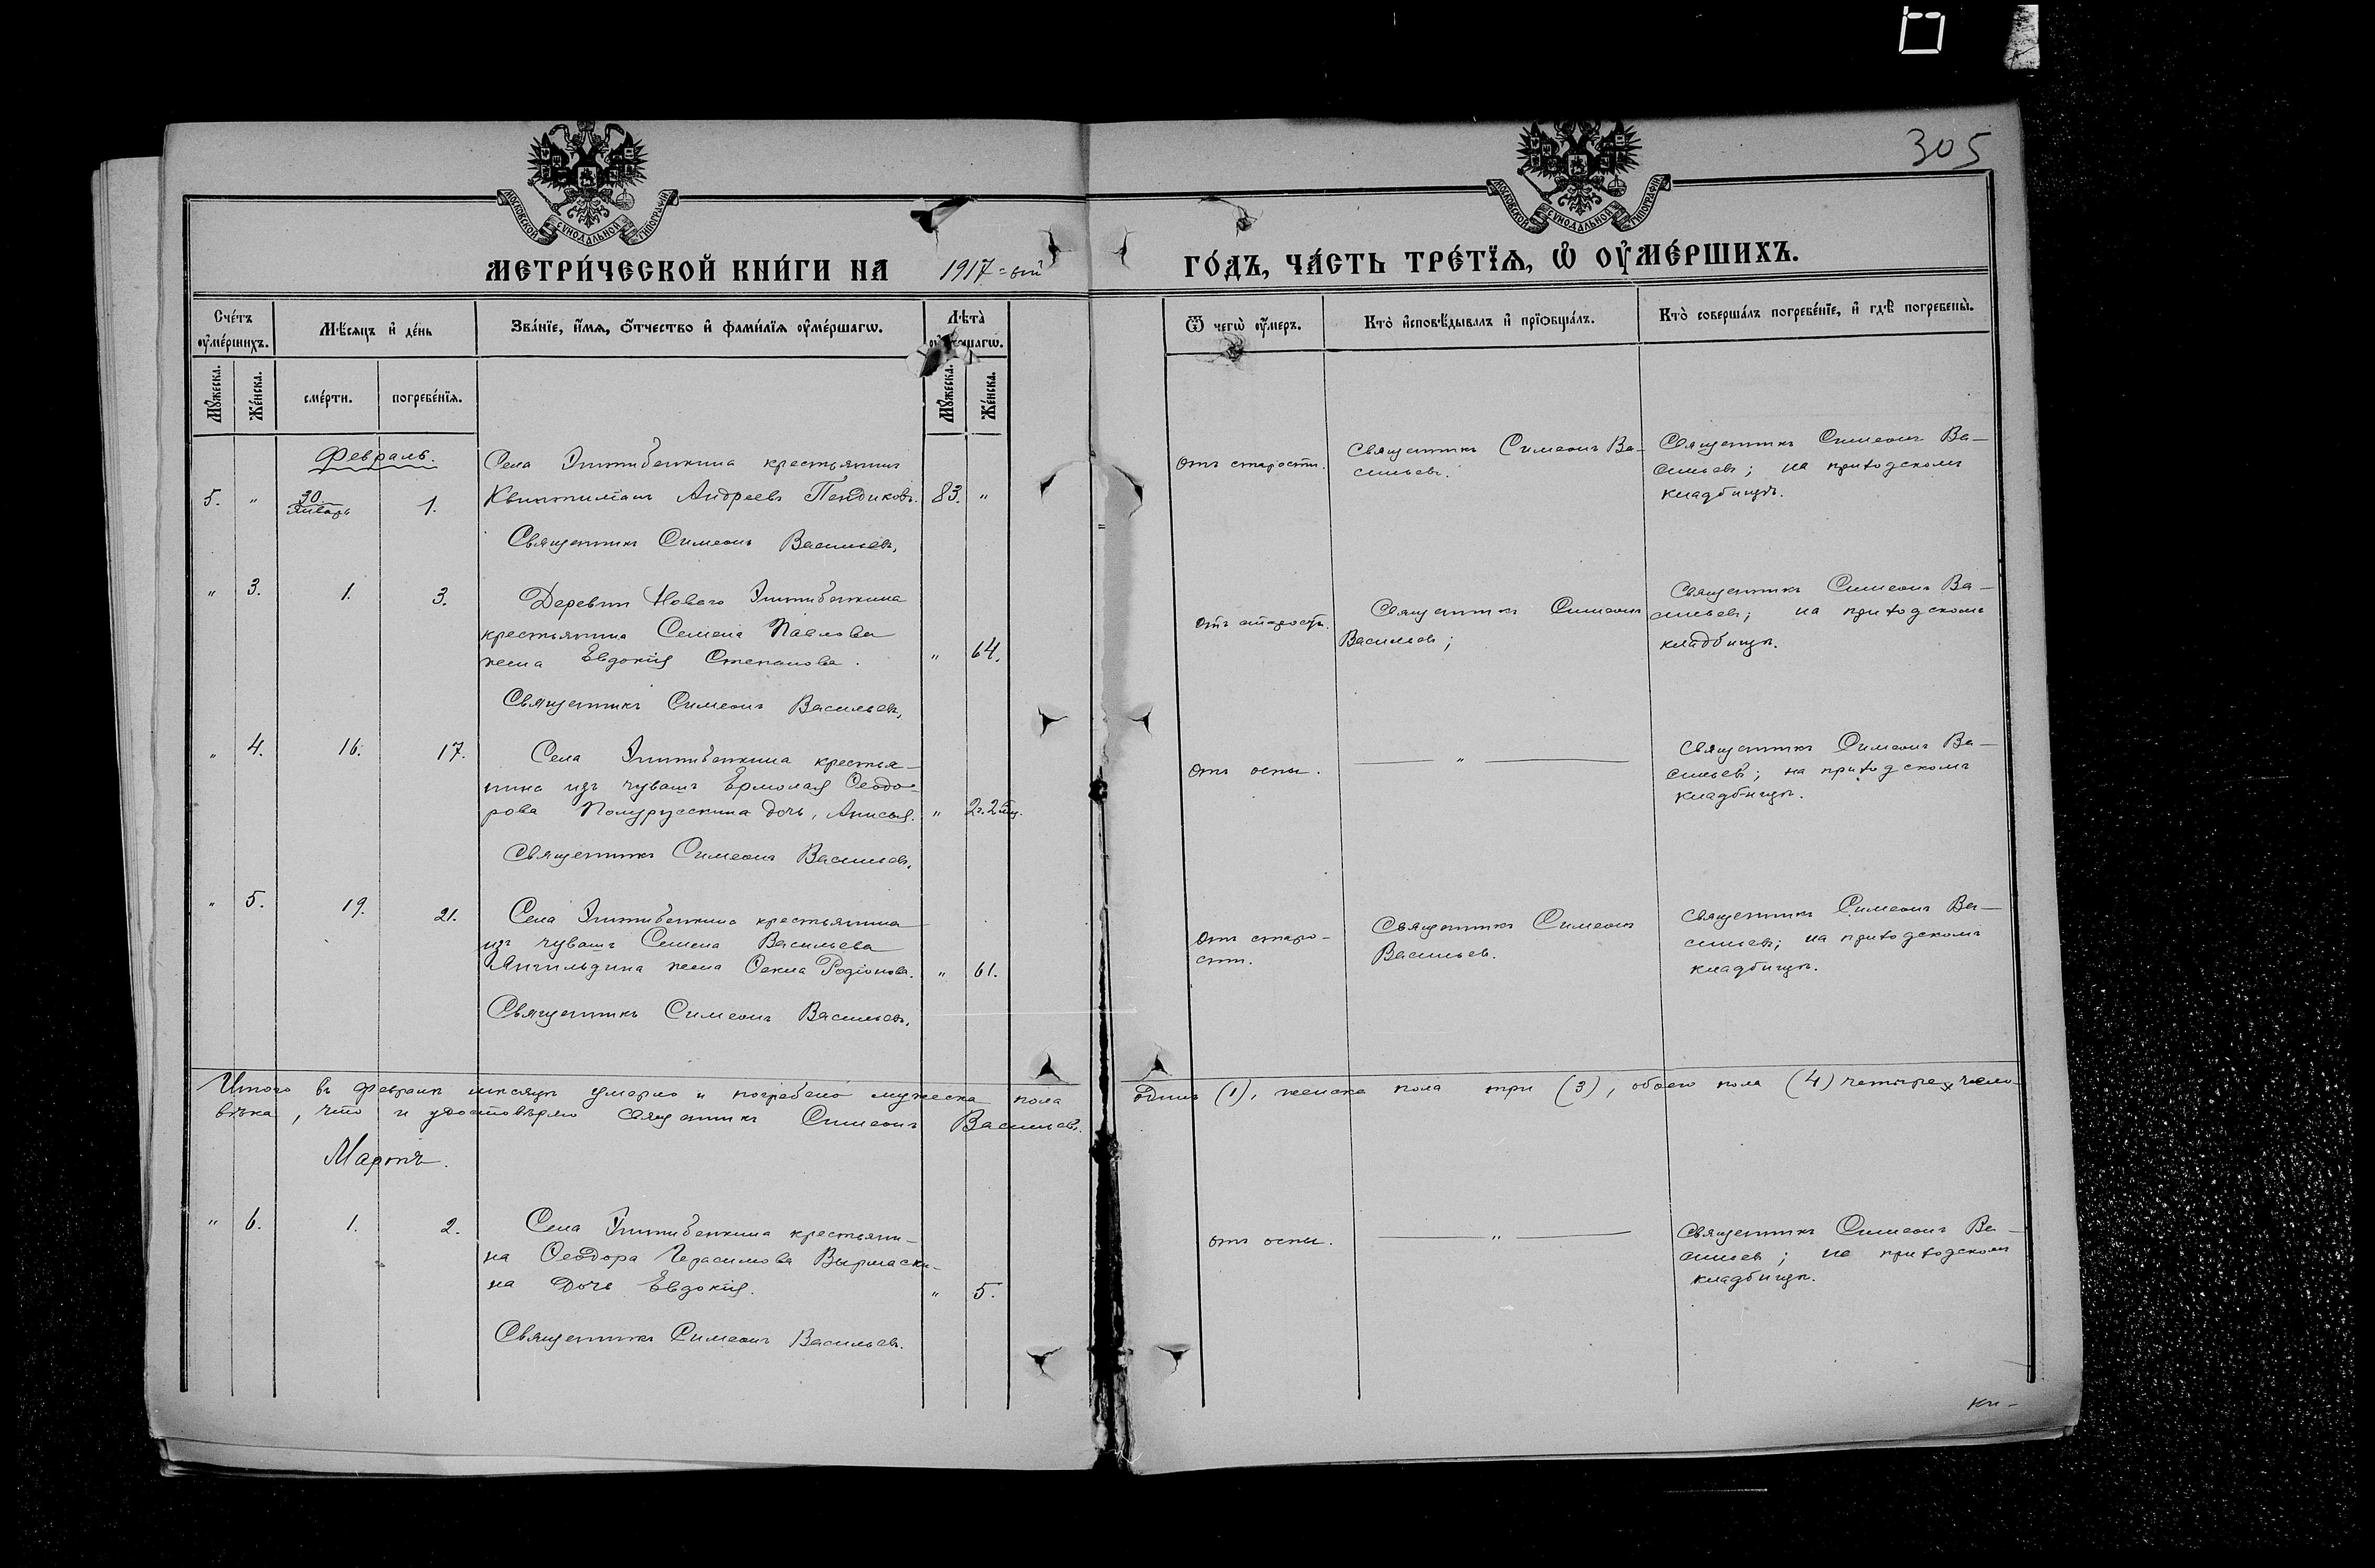 305
МОСКОВСКОЙ СѴНОДАЛЬНОЙ ТИПОГРАФІИ
МОСКОВСКОЙ СѴНОДАЛЬНОЙ ТИПОГРАФІИ
МЕТРИ́ЧЕСКОЙ КНИ́ГИ НА 1917=ый ГО́ДЪ, ЧА́СТЬ ТРЕ́ТЇѦ, Ѡ҆ ОУ҆МЕ́РШИХЪ.
Сче́тъ оу҆ме́ршихъ.
Мѣ́сѧцъ и҆ де́нь
Зва́нїе, и҆́мѧ, ѻ҆́тчество и҆ фами́лїѧ оу҆ме́ршагѡ.
Лѣ̀та оу҆ме́ршагѡ.
Ѿ чегѡ̀ оу҆́меръ.
Кто̀ и҆сповѣ́дывалъ и҆ прїѡбща́лъ.
Кто̀ соверша́лъ погребе́нїе, и҆ гдѣ̀ погребены̀.
Мꙋ́жеска. Же́нска. сме́рти. погребе́нїѧ. Мꙋ́жеска. Же́нска.
Февраль.
Села крестьянинъ
5. " 30 Январь 1. Андреевъ 83. "
Священникъ Симеонъ Васильевъ,
Отъ старости.
Священникъ Симеонъ Ва-
сильевъ.
Священникъ Симеонъ Ва-
сильевъ; на приходскомъ
кладбищѣ.
" 3. 1. 3. Деревни Новаго
крестьянина Семена Павлова
жена Евдокія Степанова. " 64.
Священникъ Симеонъ Васильевъ,
Отъ старости.
Священникъ Симеонъ
Васильевъ;
Священникъ Симеонъ Ва-
сильевъ; на приходскомъ
кладбищѣ.
" 4. 16. 17. Села крестья-
нина изъ чувашъ Ермолая Ѳеодо-
рова Полурусскина дочь, Анисья. " 2г. 2 мѣ.
Священникъ Симеонъ Васильевъ,
Отъ оспы.
"
Священникъ Симеонъ Ва-
сильевъ; на приходскомъ
кладбищѣ.
" 5. 19. 21. Села крестьянина
изъ чувашъ Семена Васильева
Янгильдина жена Ѳекла Родіонова. " 61.
Священникъ Симеонъ Васильевъ,
Отъ старо-
сти.
Священникъ Симеонъ
Васильевъ.
Священникъ Симеонъ Ва-
сильевъ; на приходскомъ
кладбищѣ.
Итого въ Февралѣ мѣсяцѣ умерло и погребено мужеска пола одинъ (1), женска пола три (3), обоего пола (4) четыре чело-
вѣка, что и удостовѣряю Священникъ Симеонъ Васильевъ.
Мартъ.
" 6. 1. 2. Села крестьяни-
на Ѳеодора Герасимова Вырмаски-
на дочь Евдокія. " 5.
Священникъ Симеонъ Васильевъ.
отъ оспы.
"
Священникъ Симеонъ Ва-
сильевъ; на приходскомъ
кладбищѣ.